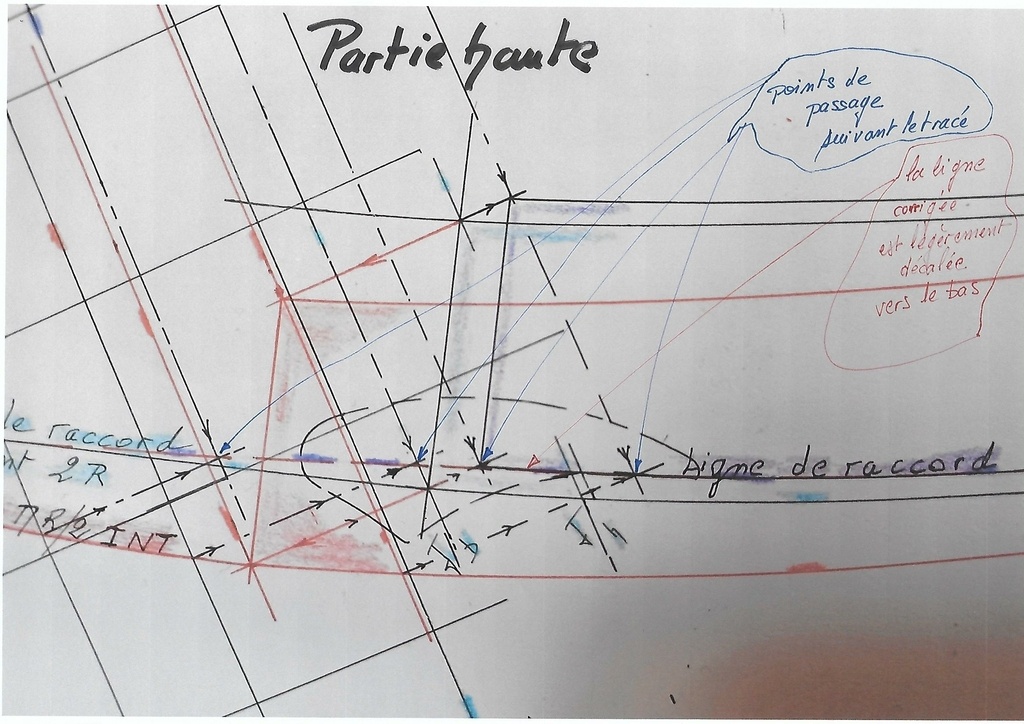 Partie haute
points de
passage
suivant le tracé
la ligne
corrigée
est légèrement
décalée
vers le bas
le raccord
nt 2R
Ligne de raccord
πR/2 INT